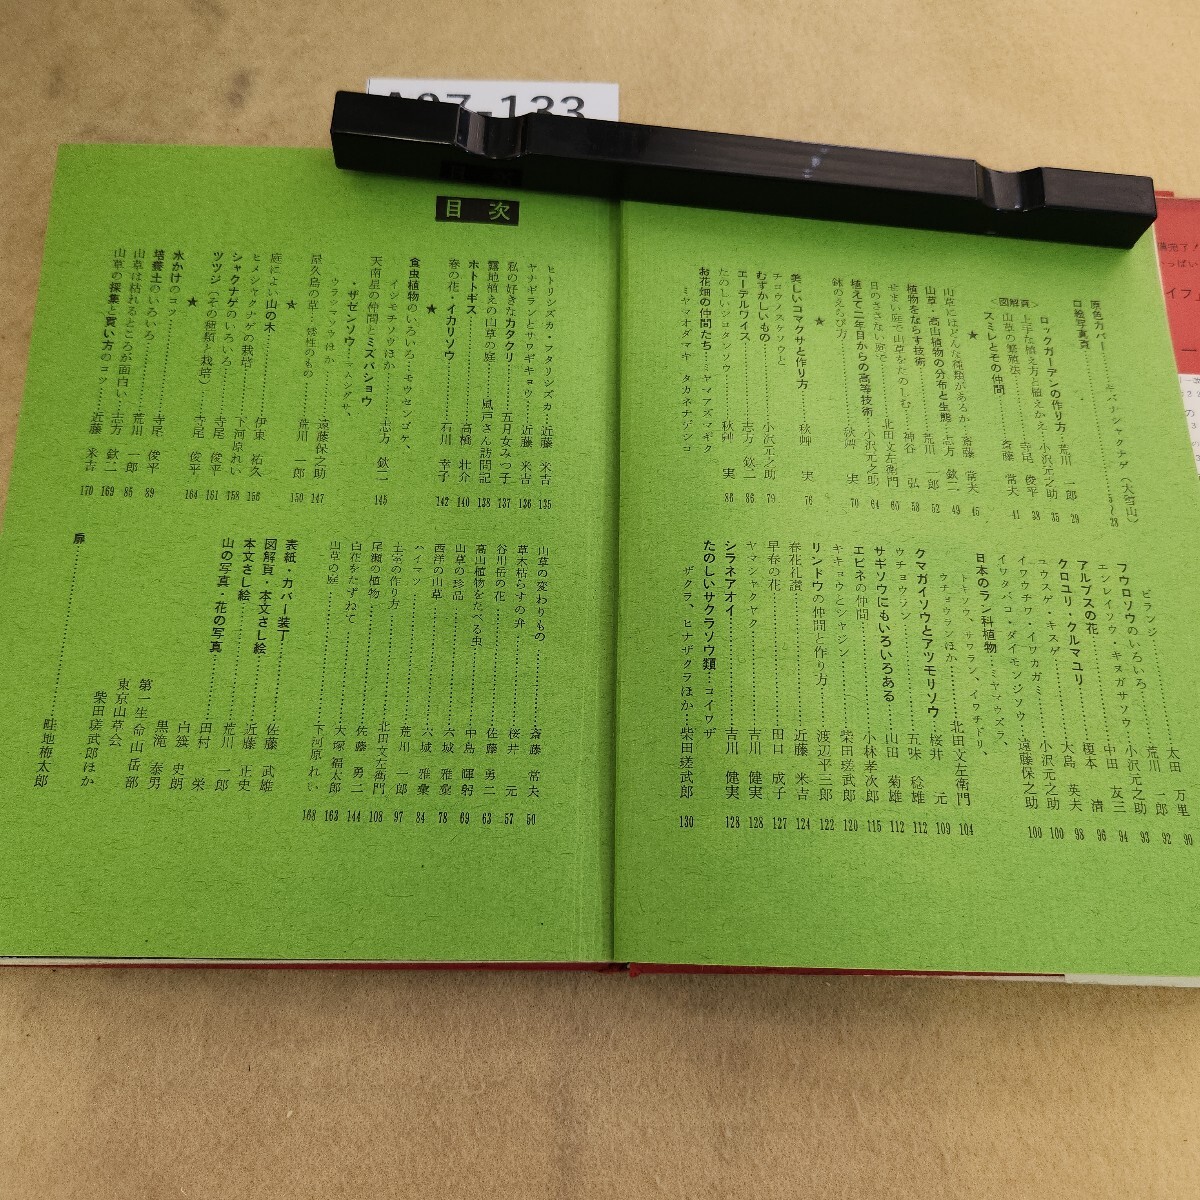 A07-133
目次
原色カバー……キバナシャクナゲ(大雪山)
口絵写真頁……5〜28
ロックガーデンの作り方…荒川一郎 29
<図解頁>
上手な植え方と植えかえ…小沢元之助 35
山草の繁殖法……寺尾俊平 38
スミレとその仲間……斎藤常夫 41
★
山草にはどんな種類があるか…斎藤常夫 45
山草・高山植物の分布と生態…志方欽二 49
植物をならす技術……荒川一郎 52
せまい庭で山草をたのしむ…神谷弘 58
日のささない庭で……北田文左衛門
植えて二年目からの高等技術…小沢元之助 64
鉢のえらび方……秋艸実 70
★
美しいコマクサと作り方……秋艸実 76
チョウノスケソウと
むずかしいもの……小沢元之助 79
エーデルワイス……志方欽二 86
たのしいジョウタンソウ……秋艸実 86
お花畑の仲間たち…ミヤマアズマギク
ミヤマオダマキ タカネナデシコ
ビランジ……太田万里 90
フウロソウのいろいろ……荒川一郎 92
エンレイソウ・キヌガサソウ…小沢元之助 93
アルプスの花……中田友三 94
クロユリ・クルマユリ……榎本清 96
ユウスゲ・キスゲ……大島英夫 98
イワウチワ・イワカガミ……小沢元之助 100
イワタバコ・ダイモンジソウ…遠藤保之助 100
日本のラン科植物…ミヤマウズラ、
トキソウ、サワラン、イワチドリ、
ウチョウランほか……北田文左衛門 104
クマガイソウとアツモリソウ…桜井元 109
ウチョウラン……五味稔雄 112
サギソウにもいろいろある…山田菊雄 112
エビネの仲間……小林孝次郎 115
キキョウとシャジン……柴田瑳武郎 120
リンドウの仲間と作り方…渡辺平三郎 122
春花礼讃……近藤米吉 124
早春の花……田口成子 127
ヤマシャクヤク……吉川健実 128
シラネアオイ……吉川健実 128
たのしいサクラソウ類…コイワザ
ザクラ、ヒナザクラほか…柴田瑳武郎 130
ヒトリシズカ・フタリシズカ…近藤米吉 135
ヤナギランとサワギキョウ…近藤米吉 136
私の好きなカタクリ……五月女みつ子 137
露地植えの山草の庭……風戸さん訪問記 138
ホトトギス……高橋壮介 140
春の花・イカリソウ……石川幸子 142
★
食虫植物のいろいろ…モウセンゴケ、
イシモチソウほか……志方欽二 145
天南星の仲間とミズバショウ
・ザゼンソウ…ムシグサ、
ウラシマソウほか……遠藤保之助 147
屋久島の草…矮性のもの……荒川一郎 150
★
庭によい山の木……伊東祐久 156
ヒメシャクナゲの栽培……下河原れい 158
シャクナゲのいろいろ……寺尾俊平 161
ツツジ(その種類と栽培)……寺尾俊平 164
★
水かけのコツ……寺尾俊平 89
培養土のいろいろ……荒川一郎 85
山草は枯れるところが面白い…志方欽二 169
山草の採集と買い方のコツ…近藤米吉 170
山草の変わりもの……斎藤常夫 50
草木枯らすの弁……桜井元 57
谷川岳の花……佐藤勇二 63
高山植物をたべる虫……中島暉躬 69
山草の珍品……六城雅彙 78
西洋の山草……六城雅彙 84
ハイマツ……荒川一郎 97
土室の作り方……北田文左衛門 108
尾瀬の植物……佐藤勇二 144
白花をたずねて……大塚福太郎 163
山草の庭……下河原れい 168
表紙・カバー装丁……佐藤武雄
図解頁・本文さし絵……近藤正史
本文さし絵……荒川一郎
山の写真・花の写真……田村栄
白簱史朗
黒滝泰男
第一生命山岳部
東京山草会
柴田瑳武郎ほか
扉……畦地梅太郎